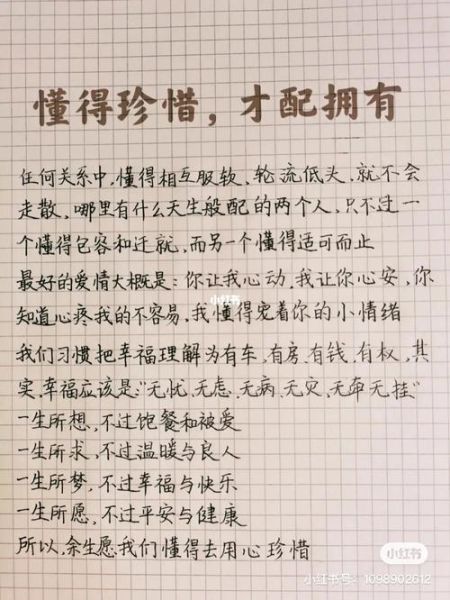 懂得珍惜，才配拥有
任何关系中，懂得相互服软、轮流低头，就不会
走散，哪里有什么天生般配的两个人，只不过一
个懂得包容和迁就，而另一个懂得适可而止
小红书
最好的爱情大概是：你让我心动，我让你心安，你
知道心疼我的不容易，我懂得宠着你的小情绪
我们习惯把幸福理解为有车，有房，有钱，有权，其
实，幸福应该是：“无忧、无虑、无病、无灾、无牵无挂”
一生所想，不过饱餐和被爱
一生所求，不过温暖与良人
一生所梦，不过幸福与快乐
一生所愿，不过平安与健康
所以，余生愿我们懂得去用心珍惜
小红书
小红书号：1098902612